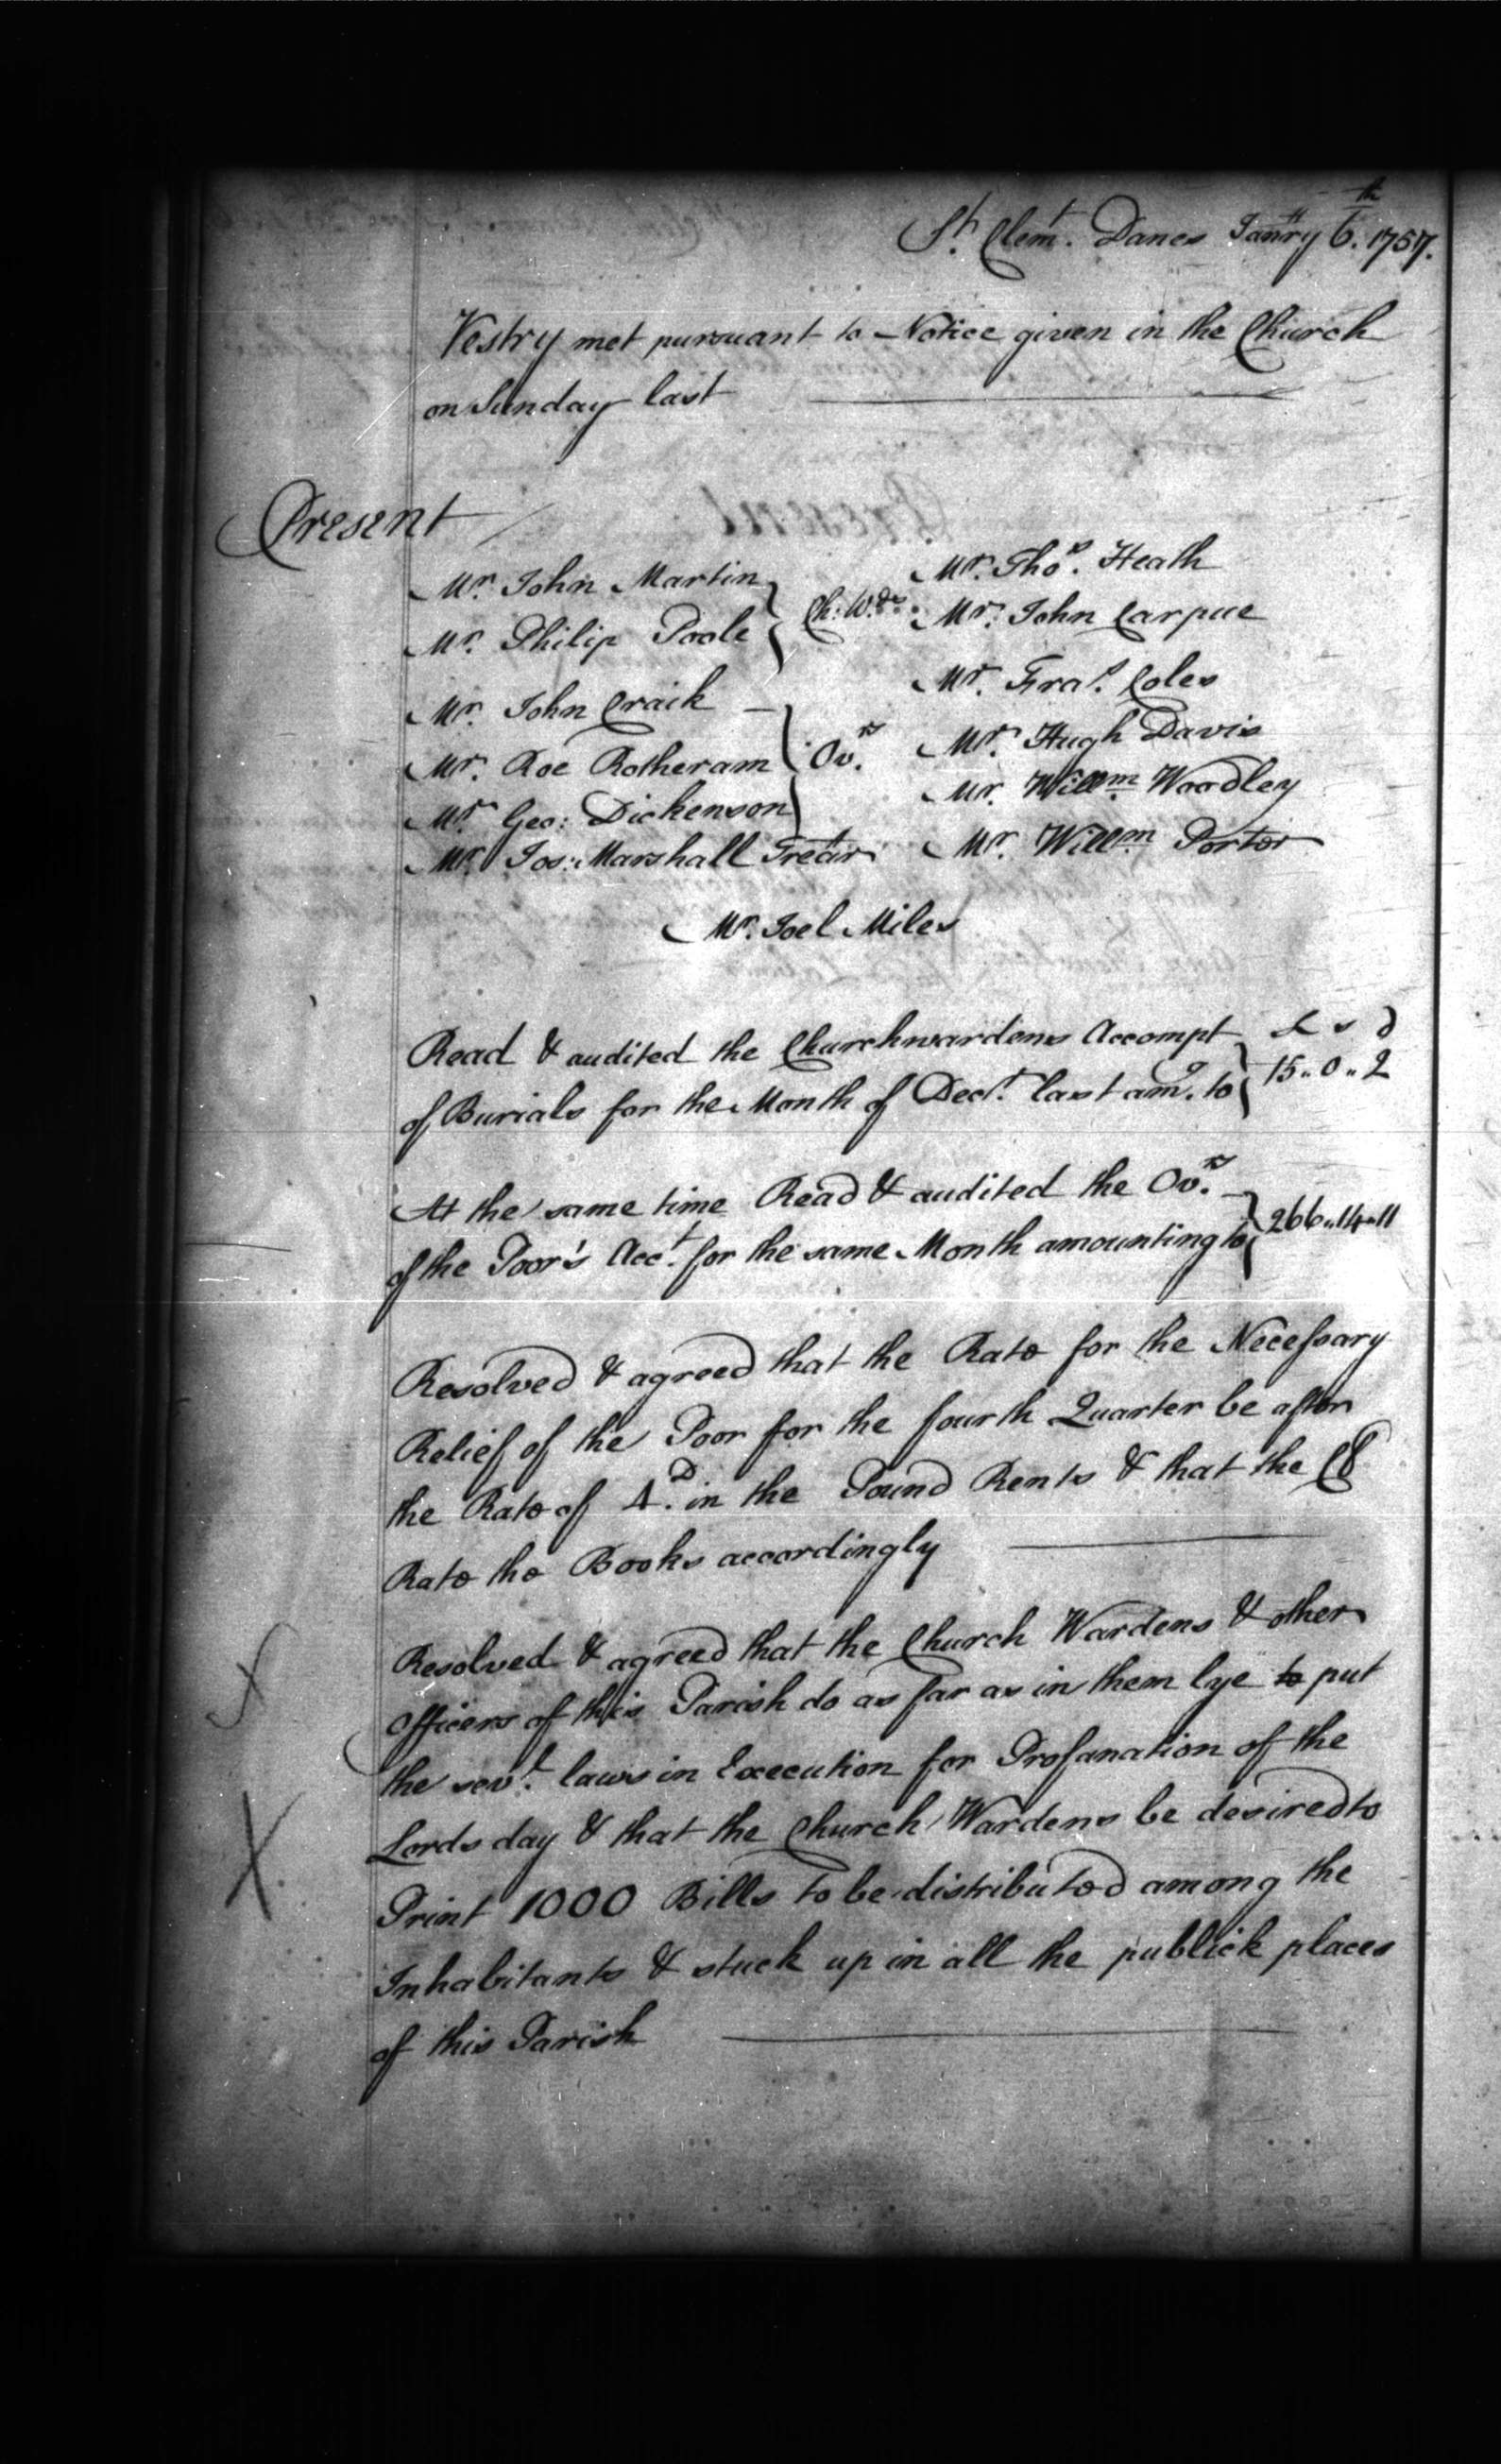 St. Clemt. Danes Janry 6th. 1757.
Vestry met pursuant to Notice given in the Church
on Sunday last
Present
Mr. John Martin
Mr. Philip Poole
Ch: Wds.
Mr. John Craik
Mr. Roe Rotheram
Mr. Geo: Dickenson
Ovrs.
Mr. Jos: Marshall Trear
Mr. Thos. Heath
Mr. John Carpue
Mr. Fras. Coles
Mr. Hugh Davis
Mr. Willm. Woodley
Mr. Willm. Porter
Mr. Joel Miles
Read & audited the Churchwardens Accompt £ s d
of Burials for the Month of Decr. last amo. to 15.. 0.. 2
At the same time Read & audited the Ovrs.
of the Poor's Acct. for the same Month amounting to 266..14..11
Resolved & agreed that the Rate for the Necessary
Relief of the Poor for the fourth Quarter be after
the Rate of 4D. in the Pound Rents & that the
Rate the Books accordingly
Resolved & agreed that the Church Wardens & other
Officers of this Parish do as far as in them lye to put
the sevl. laws in Execution for Profanation of the
Lords day & that the Church Wardens be desired to
Print 1000 Bills to be distributed among the
Inhabitants & stuck up in all the publick places
of this Parish